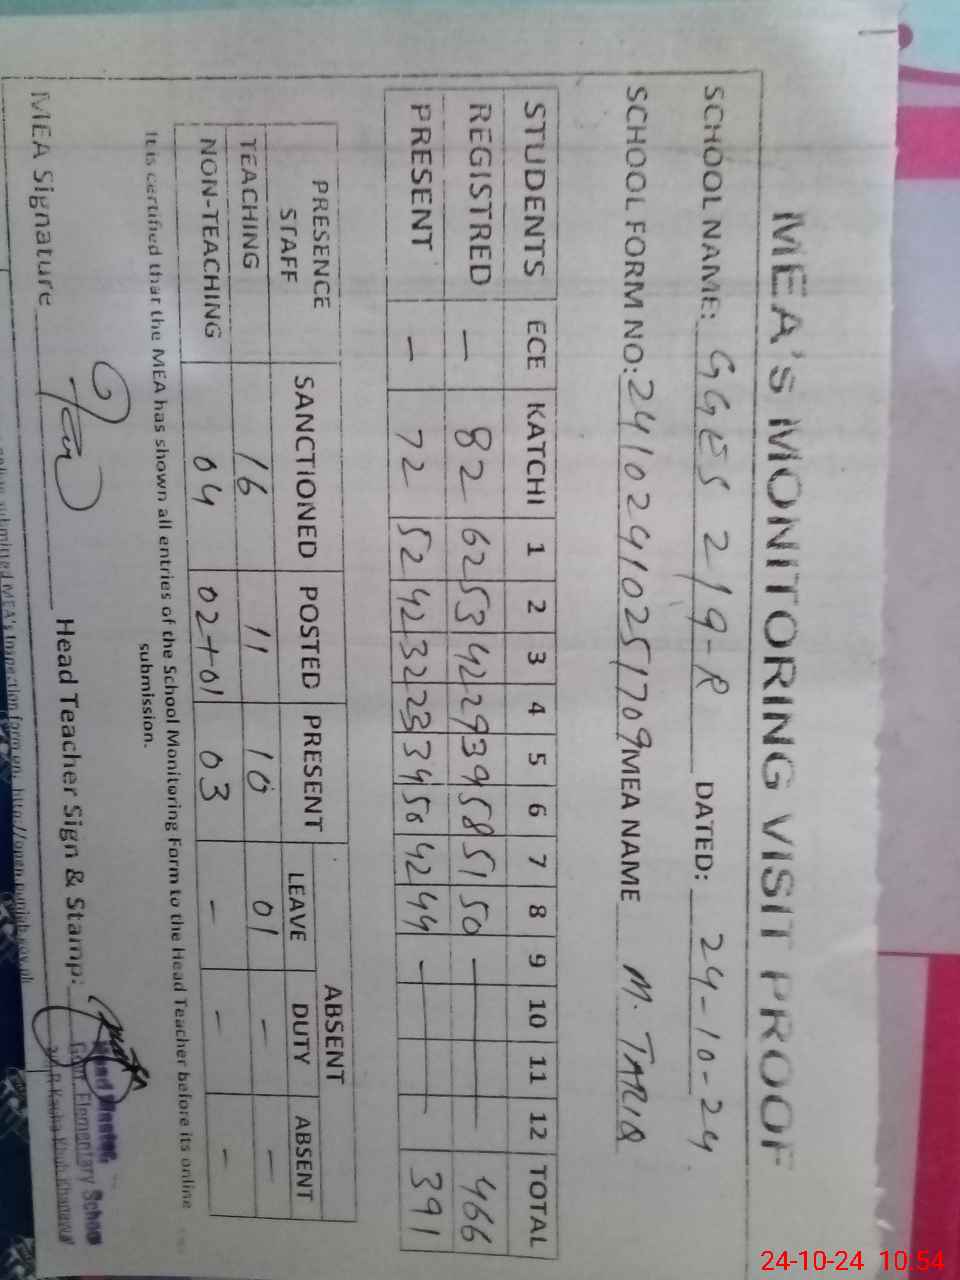 MEA'S MONITORING VISIT PROOF
SCHOOL NAME: GGES 219-R DATED: 24-10-24
SCHOOL FORM NO: 24102410251709 MEA NAME M. TARIQ
STUDENTS ECE KATCHI 1 2 3 4 5 6 7 8 9 10 11 12 TOTAL
REGISTRED - 82 62 53 42 29 39 58 51 50 - 466
PRESENT - 72 52 42 32 23 34 50 42 44 - 391
PRESENCE STAFF SANCTIONED POSTED PRESENT ABSENT
LEAVE DUTY ABSENT
TEACHING 16 11 10 01 - -
NON-TEACHING 04 02+01 03 - - -
It is certified that the MEA has shown all entries of the School Monitoring Form to the Head Teacher before its online
submission.
MEA Signature Head Teacher Sign & Stamp:
Head Master
Govt. Elementary School
24-10-24 10:54